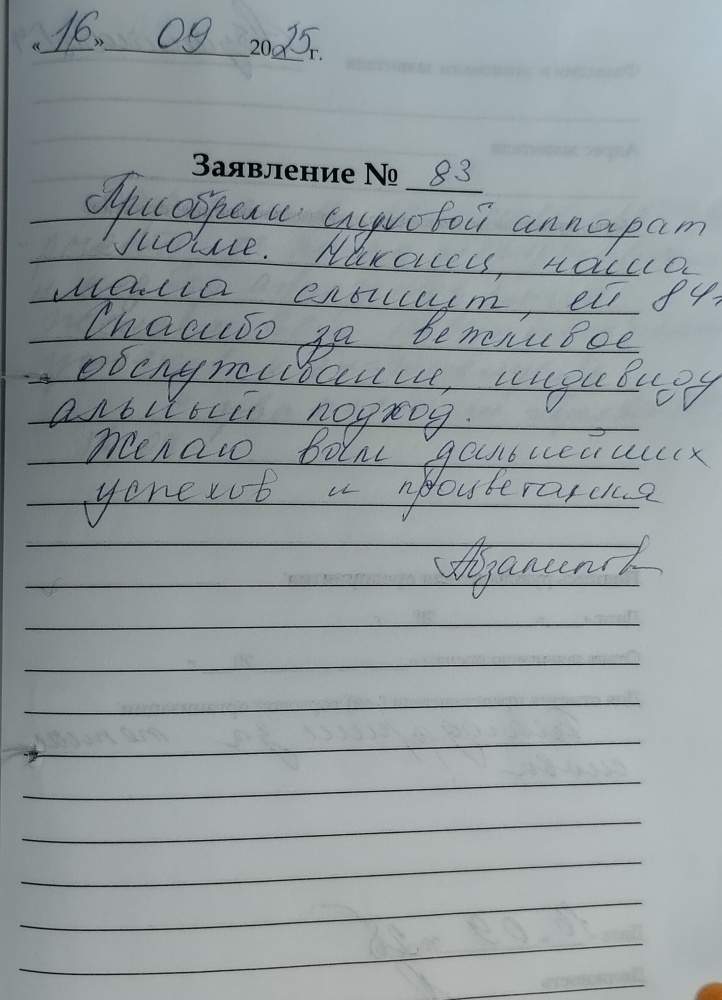 «16» 09 2025 г.
Заявление № 83
Приобрели слуховой аппарат
маме. Наконец, наша
мама слышит, ей 84г
Спасибо за вежливое
обслуживание, индивиду
альный подход.
Желаю вам дальнейших
успехов и процветания